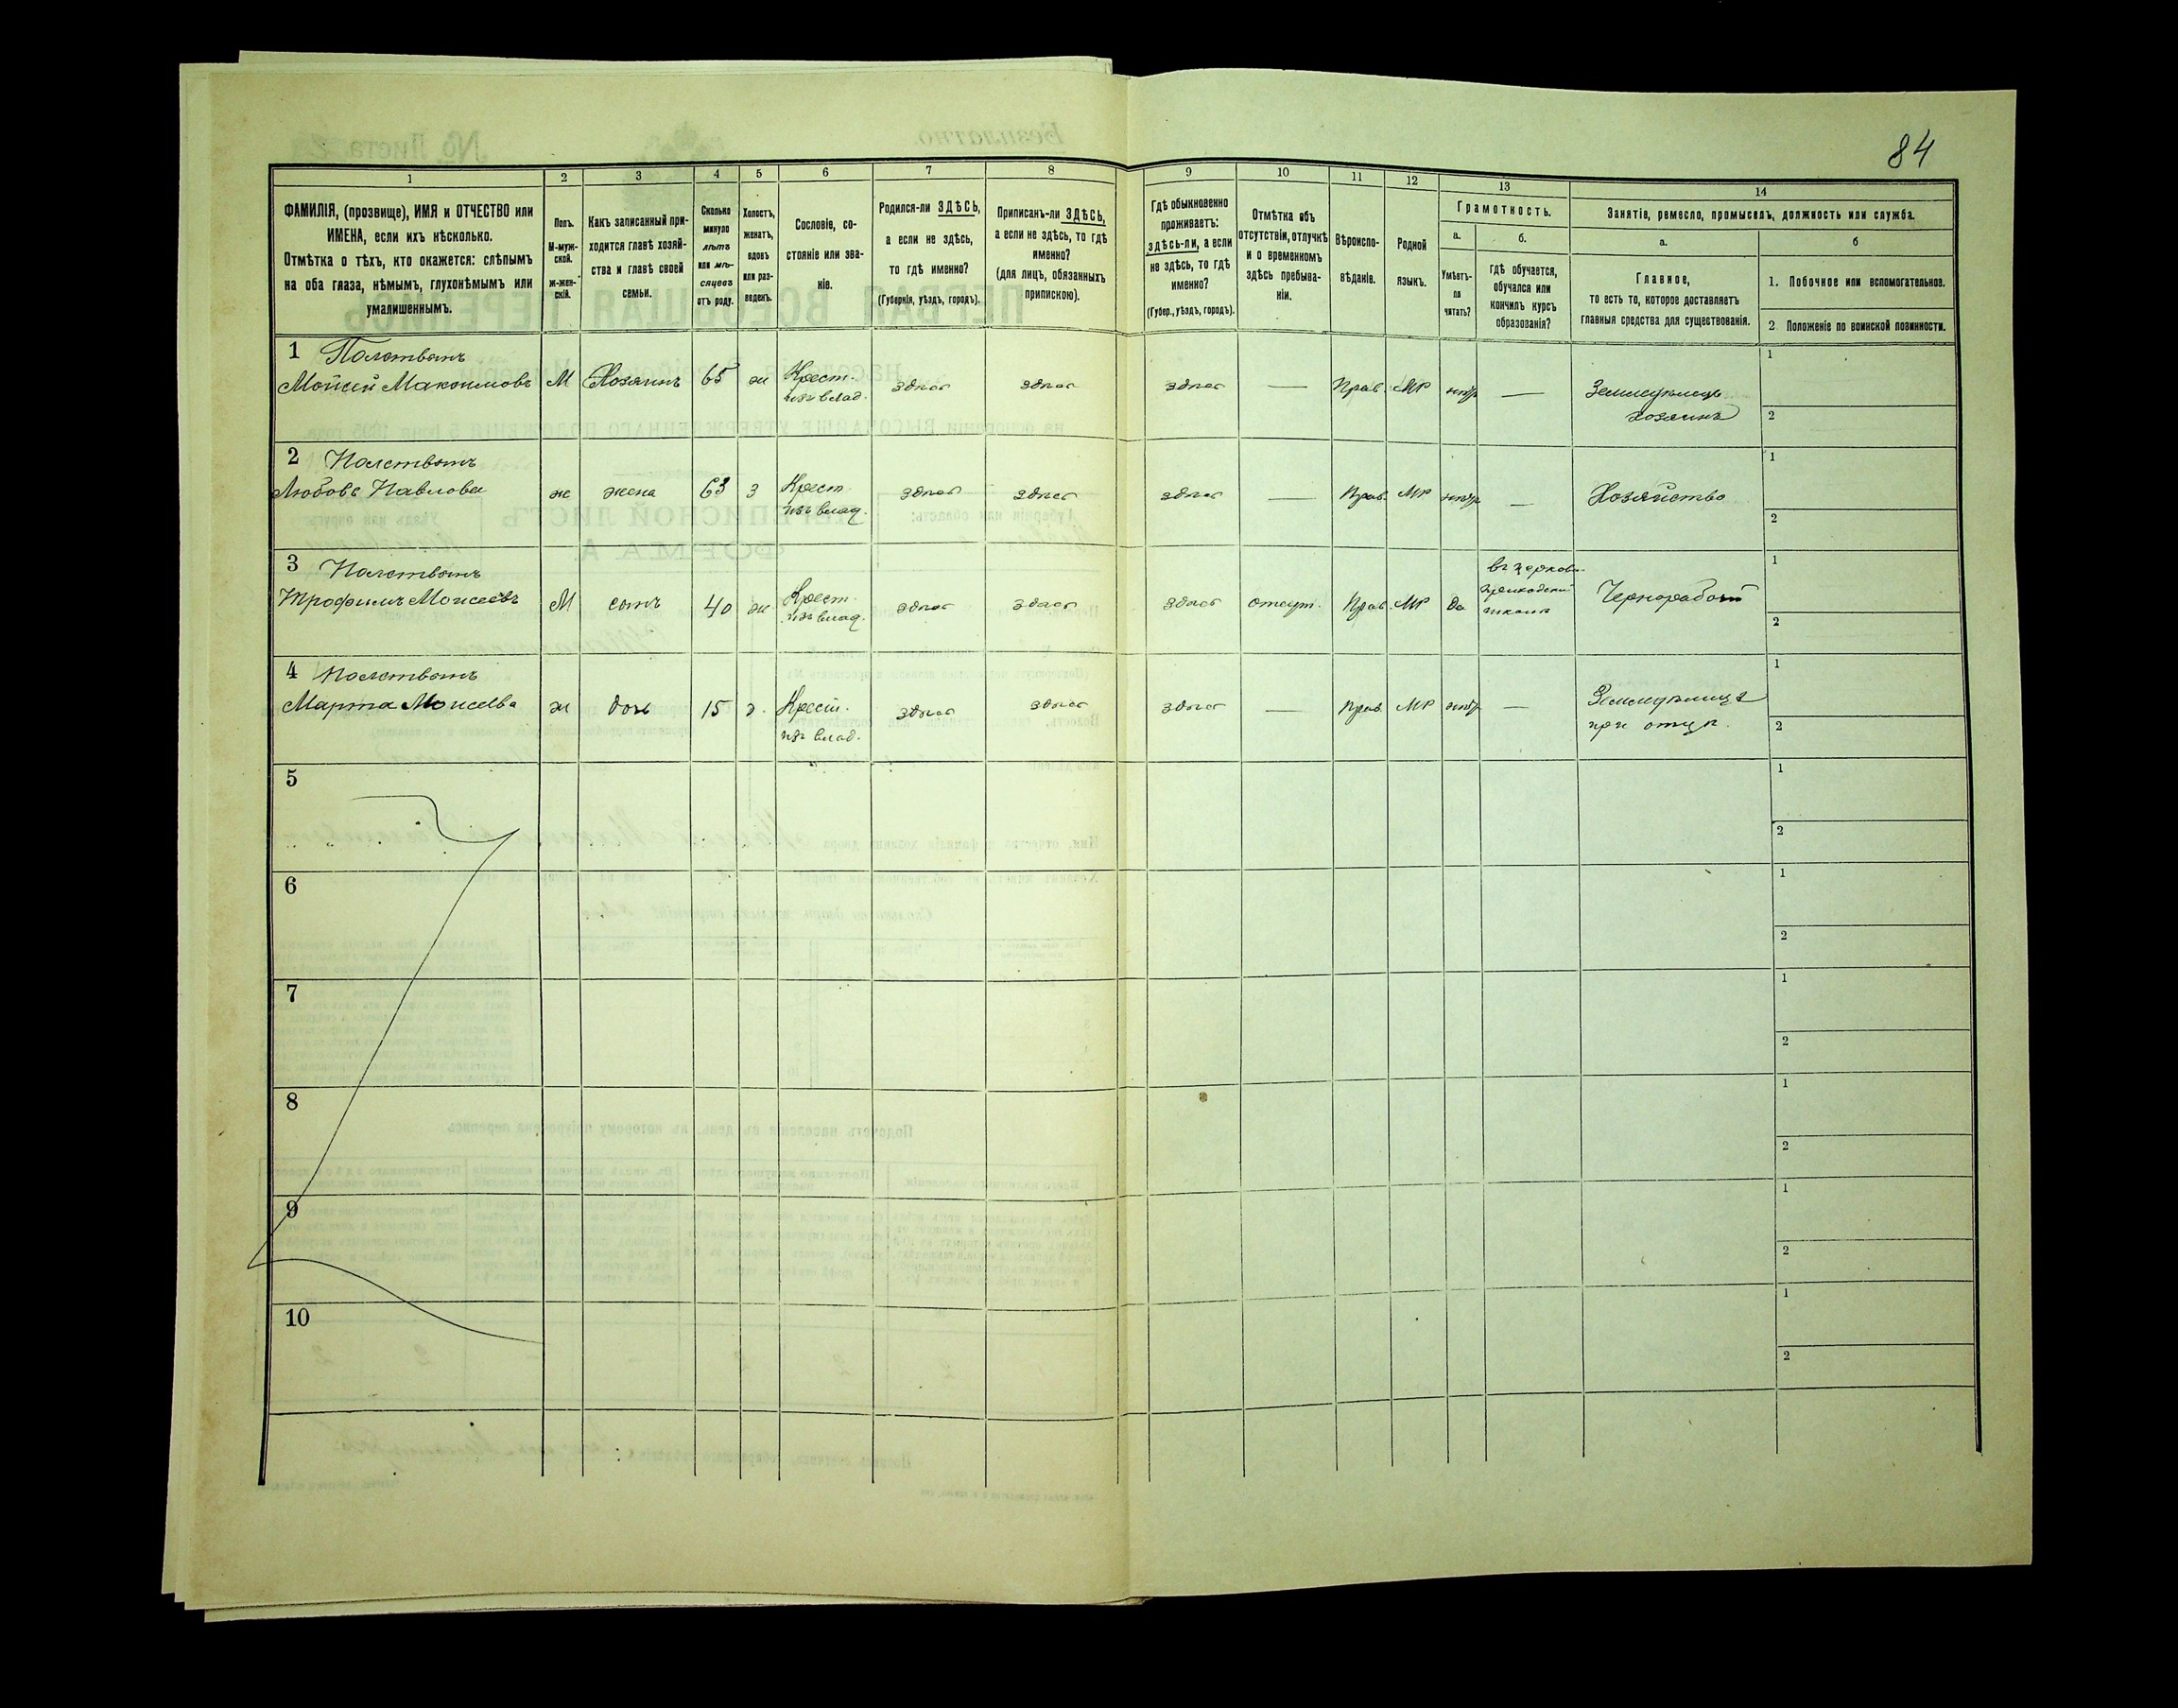 84
1 2 3 4 5 6 7 8 9 10 11 12 13 14
ФАМИЛІЯ, (прозвище), ИМЯ и ОТЧЕСТВО или
ИМЕНА, если ихъ нѣсколько.
Отмѣтка о тѣхъ, кто окажется: слѣпымъ
на оба глаза, нѣмымъ, глухонѣмымъ или
умалишеннымъ.
Полъ.
М-муж-
ской.
ж-жен-
скій.
Какъ записанный при-
ходится главѣ хозяй-
ства и главѣ своей
семьи.
Сколько
минуло
лѣтъ
или мѣ-
сяцевъ
отъ роду.
Холостъ,
женатъ,
вдовъ
или раз-
веденъ.
Сословіе, со-
стояніе или зва-
ніе.
Родился-ли ЗДѢСЬ,
а если не здѣсь,
то гдѣ именно?
(Губернія, уѣздъ, городъ).
Приписанъ-ли ЗДѢСЬ,
а если не здѣсь, то гдѣ
именно?
(для лицъ, обязанныхъ
припискою).
Гдѣ обыкновенно
проживаетъ:
здѣсь-ли, а если
не здѣсь, то гдѣ
именно?
(Губер., уѣздъ, городъ).
Отмѣтка объ
отсутствіи, отлучкѣ
и о временномъ
здѣсь пребыва-
ніи.
Вѣроиспо-
вѣданіе.
Родной
языкъ.
Грамотность.
а.
Умѣетъ-
ли
читать?
б.
гдѣ обучается,
обучался или
кончилъ курсъ
образованія?
Занятіе, ремесло, промыселъ, должность или служба.
а.
Главное,
то есть то, которое доставляетъ
главныя средства для существованія.
б
1. Побочное или вспомогательное.
2. Положеніе по воинской повинности.
1 Полствянъ
Мойсей Максимовъ М Хозяинъ 65 ж Крест. здѣсь здѣсь здѣсь — Прав. МР нѣтъ — Земледѣлецъ 1
изъ влад. хозяинъ 2
2 Полствянъ
Любовь Павлова ж жена 63 з Крест. здѣсь здѣсь здѣсь — Прав. МР нѣтъ — Хозяйство 1
изъ влад. 2
3 Полствянъ въ церковн.
Трофимъ Моисеевъ М сынъ 40 ж Крест. здѣсь здѣсь здѣсь отсут. Прав. МР да приходской Чернорабочій 1
изъ влад. школѣ 2
4 Полствянъ
Марта Моисеева ж дочь 15 д. Крест. здѣсь здѣсь здѣсь — Прав. МР нѣтъ — Земледѣлица 1
изъ влад. при отцѣ. 2
5 1
2
6 1
2
7 1
2
8 1
2
9 1
2
10 1
2